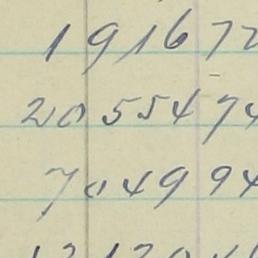 191672
2055474
704994